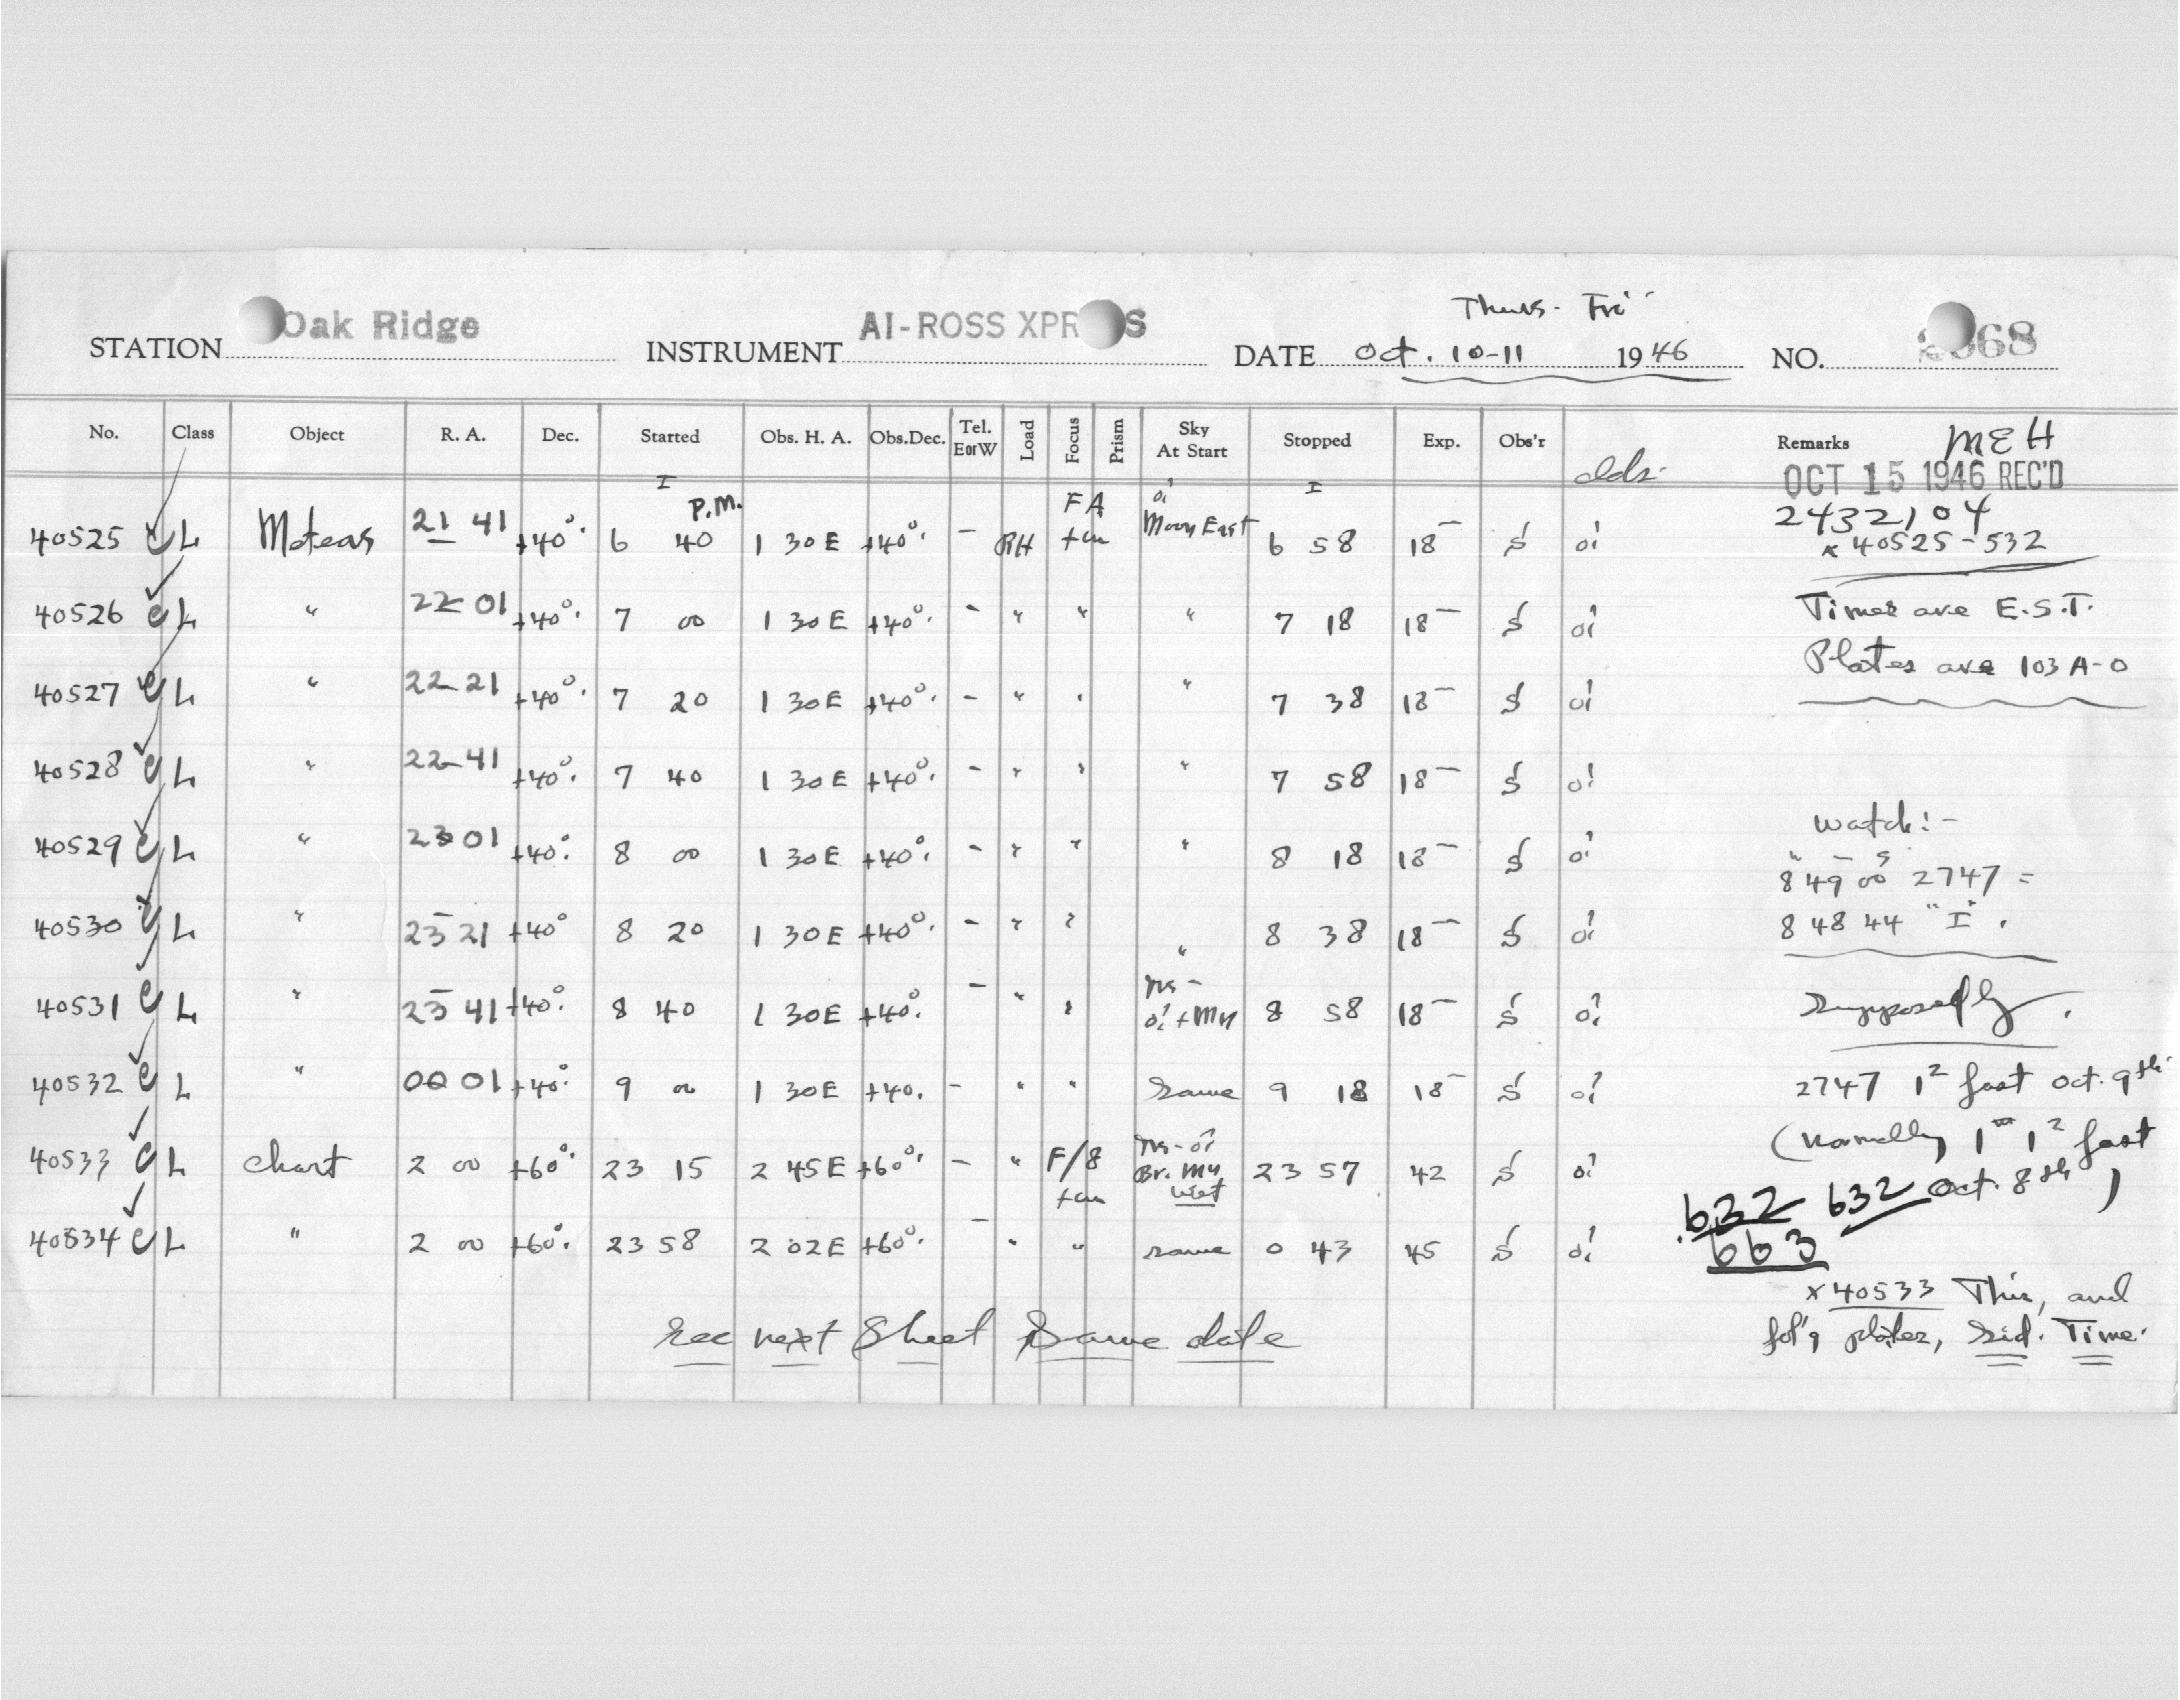 Thurs - Fri
STATION Oak Ridge INSTRUMENT AI-ROSS XPR S DATE Oct. 10-11 1946 NO. 68
No. Class Object R. A. Dec. Started Obs. H. A. Obs.Dec. Tel. EorW Load Focus Prism Sky At Start Stopped Exp. Obs'r clds. Remarks MEH
OCT 15 1946 REC'D
I P.M. I
40525 C L Meteors 21 41 +40° 6 40 1 30E +40° - RH FA Moon East 6 58 18 S 0
2432104
x 40525-532
40526 C L " 22 01 +40° 7 00 1 30E +40° - " " " 7 18 18 S 0
Times are E.S.T.
Plates are 103A-O
40527 C L " 22 21 +40° 7 20 1 30E +40° - " " " 7 38 18 S 0
40528 C L " 22 41 +40° 7 40 1 30E +40° - " " " 7 58 18 S 0
Watch:-
40529 C L " 23 01 +40° 8 00 1 30E +40° - " " " 8 18 18 S 0
8 49 00 2747 =
40530 C L " 23 21 +40° 8 20 1 30E +40° - " " " 8 38 18 S 0
8 48 44 "I".
40531 C L " 23 41 +40° 8 40 1 30E +40° - " " 8 58 18 S 0
Supposedly.
40532 C L " 00 01 +40° 9 00 1 30E +40° - " " Same 9 18 18 S 0
2747 1s fast Oct. 9th.
(Normally 1m 1s fast Oct. 8th)
40533 C L Chart 2 00 +60° 23 15 2 45E +60° - " F/8 Br. Mn West 23 57 42 S 0
632 632
663
40534 C L " 2 00 +60° 23 58 2 02E +60° - " " same 0 43 45 S 0
x 40533 This, and
fol'g plates, Sid. Time.
See next Sheet Same date